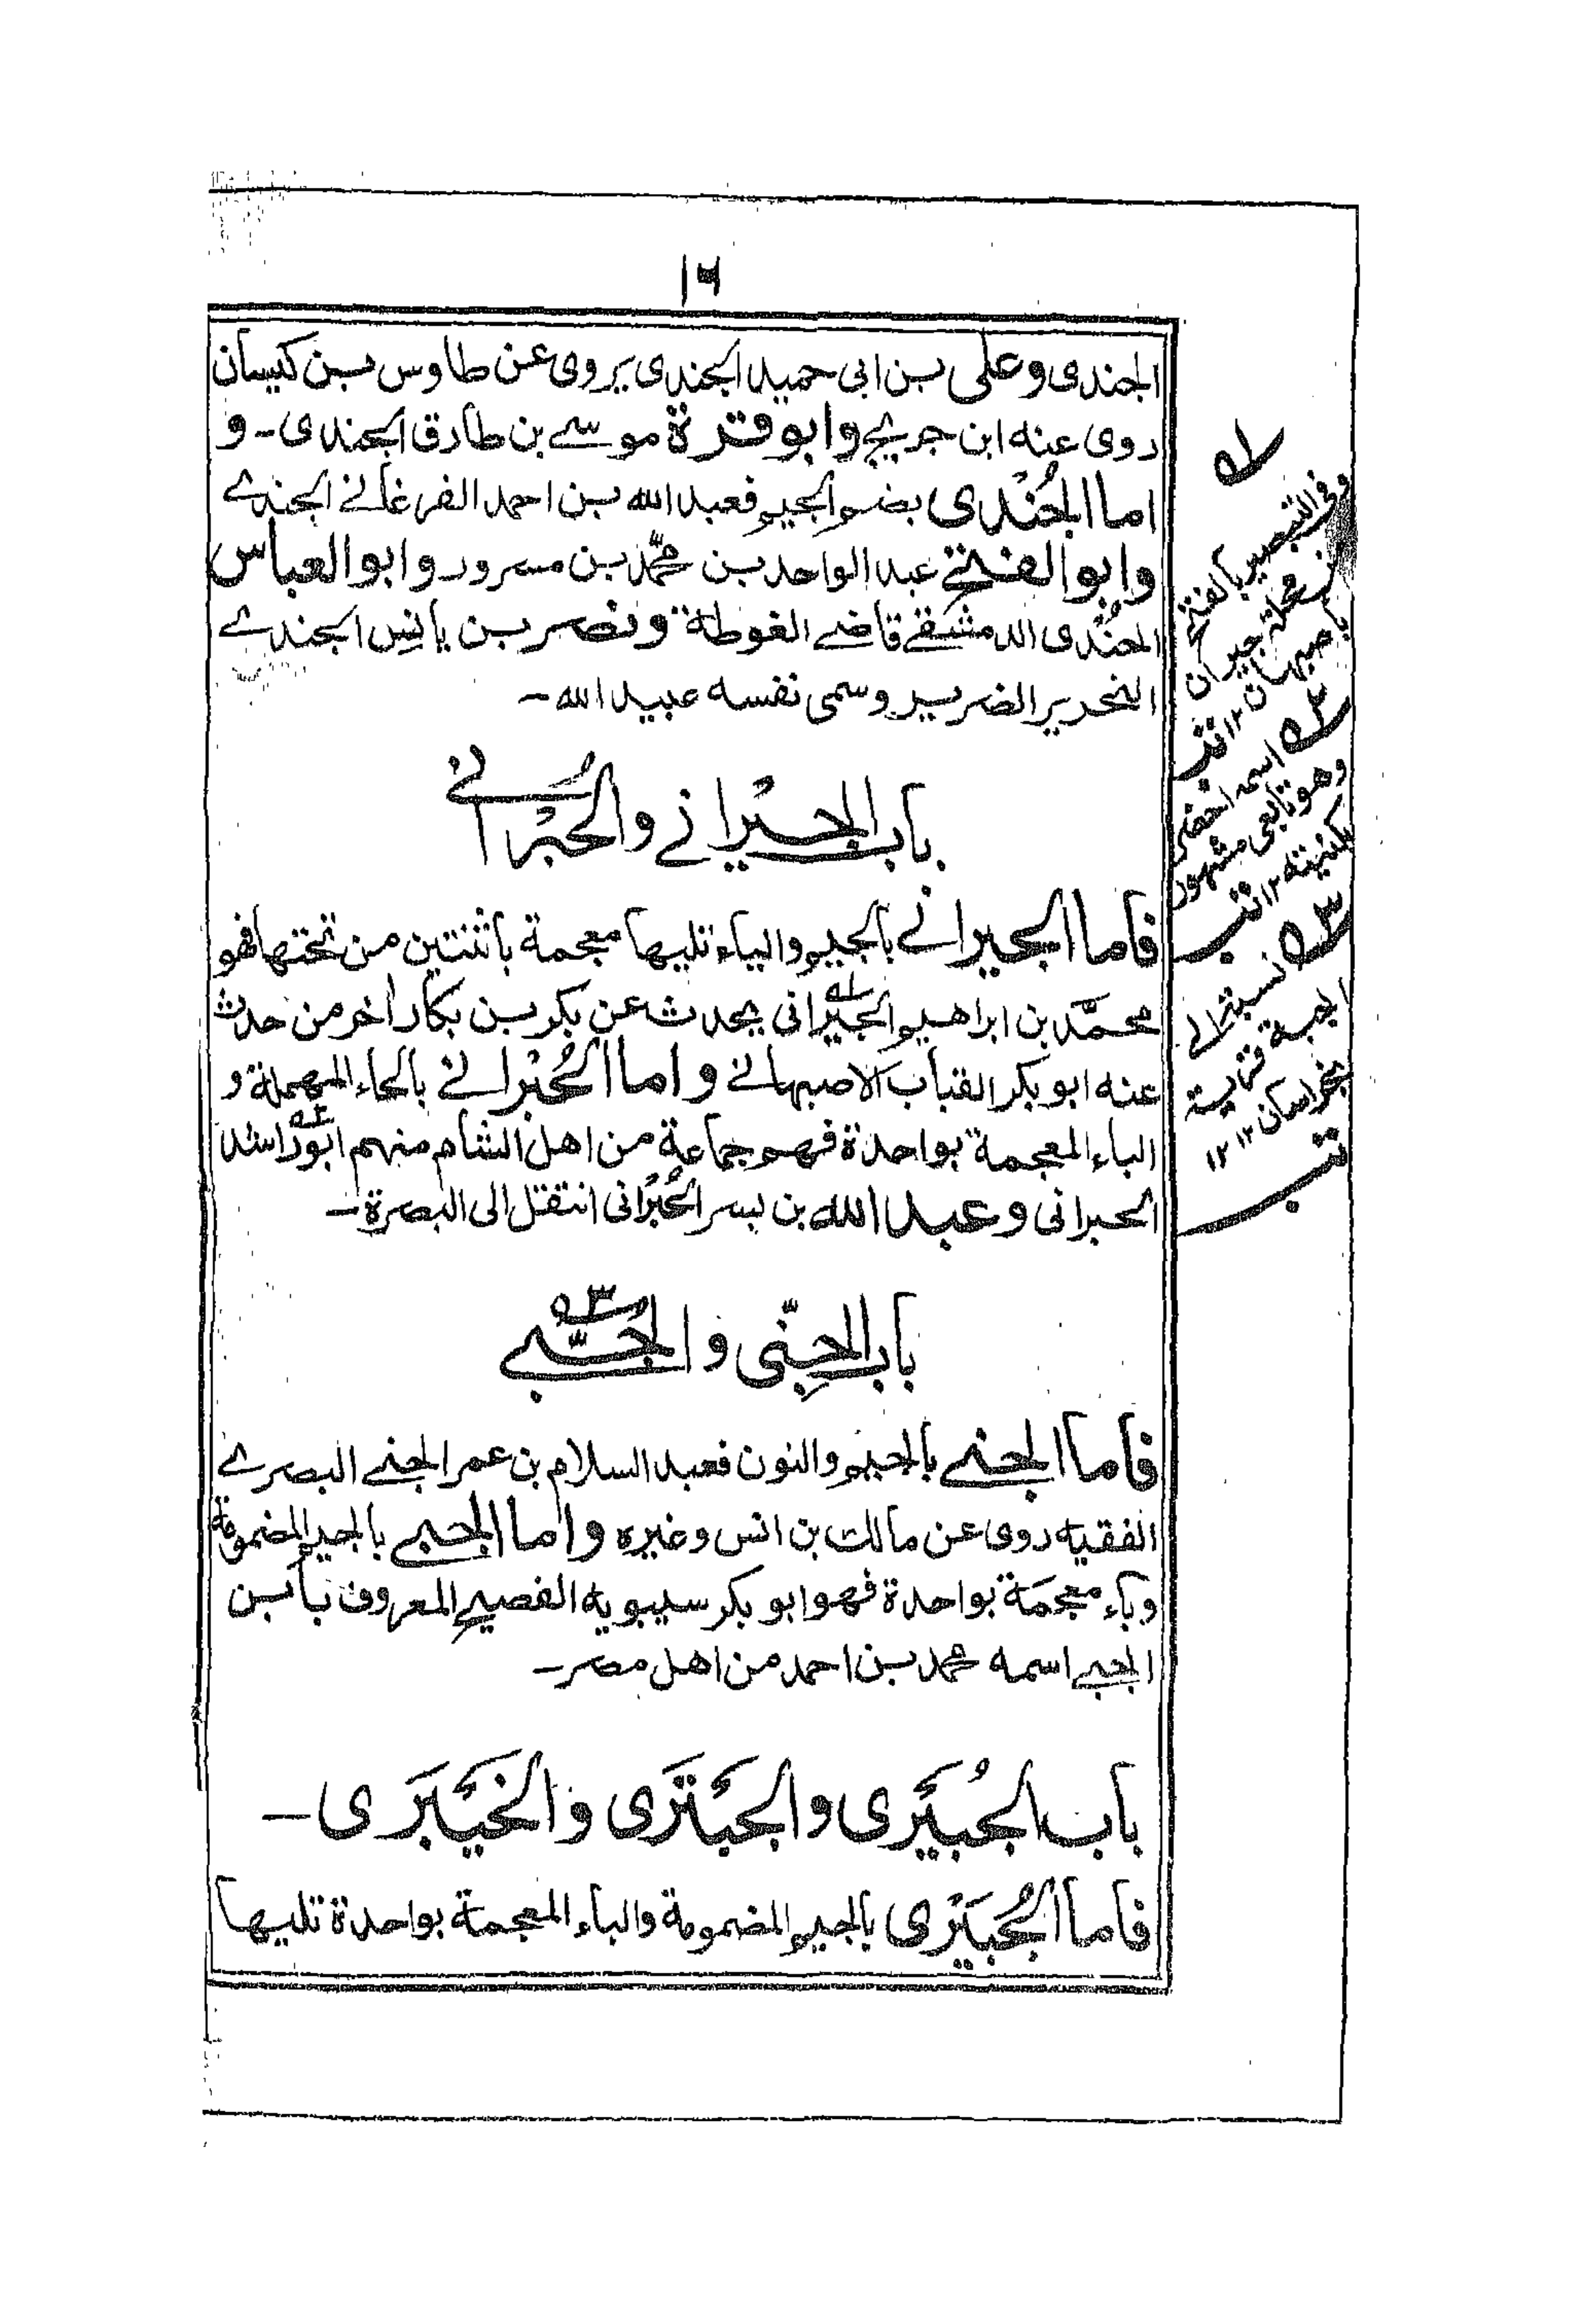 ١٦
الجندى وعلى بن ابى حميد الجندى يروى عن طاوس بن كيسان
روى عنه ابن جريج وابو قرة موسے بن طارق الجندى - و
اما الجُنْدى بضم الجيم فعبد الله بن احمد الفرغانے الجندے
وابو الفتح عبد الواحد بن محمّد بن مسرور وابو العباس
الجُنْدى الدمشقے قاضے الغوطة ونصر بن يانِس الجندے
النحرير الضرير وسمى نفسه عبيد الله -
باب الجِيْرانے والحُبْرانے
فاما الجيرانے بالجيم والياء تليها معجمة باثنتين من تحتها فهو
محمّد بن ابراهيم الجيرانى له يحدث عن بكر بن بكار اخر من حدث
عنه ابو بكر القباب الاصبهانے واما الحُبْرانے بالحاء المهملة و
الباء المعجمة بواحدة فهم جماعة من اهل الشام منهم ابو راشد ٢ه
الحبرانى وعبد الله بن بسر الحُبْرانى انتقل الى البصرة -
باب الجِنّى والجُبّے ٣ه
فاما الجنے بالجيم والنون فعبد السلام بن عمر الجنے البصرے
الفقيه روى عن مالك بن انس وغيره واما الجبے بالجيم المضمومة
وباء معجمة بواحدة فهو ابو بكر سيبويه الفصيح المعروف بابن
الجبے اسمه محمد بن احمد من اهل مصر -
باب الجُبَيْرى والجَبْتَرى والخَيْبَرى -
فاما الجُبَيْرى بالجيم المضمومة والباء المعجمة بواحدة تليها
له
وفى التبصير بالفتح
محلة جيران
باصبهان ١٢
٢ه اسمه اخضر
وهو تابعى مشهور
بكنيته ١٢
٣ه نسبته الى
الجبة قرية
بخراسان ١٢ ١٢